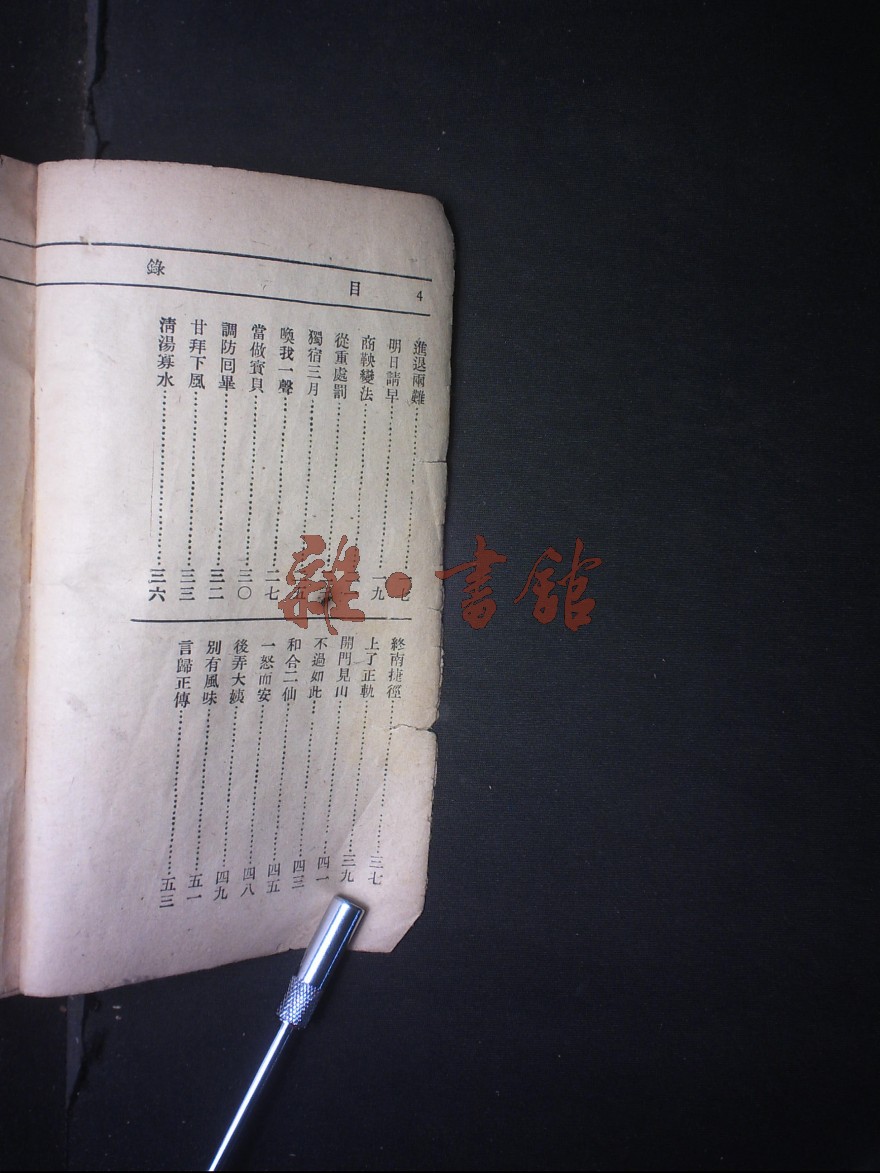 目錄 4
進退兩難⋯⋯七
明日請早⋯⋯一九
商鞅變法⋯⋯
從重處罰⋯⋯
獨宿三月⋯⋯五
喚我一聲⋯⋯二七
當做寶貝⋯⋯三〇
調防回畢⋯⋯三二
甘拜下風⋯⋯三三
清湯寡水⋯⋯三六
終南捷徑⋯⋯三七
上了正軌⋯⋯三九
開門見山⋯⋯四一
不過如此⋯⋯四三
和合二仙⋯⋯四五
一怒而安⋯⋯四八
後弄大姨⋯⋯四九
別有風味⋯⋯五一
言歸正傳⋯⋯五三
雜·書館